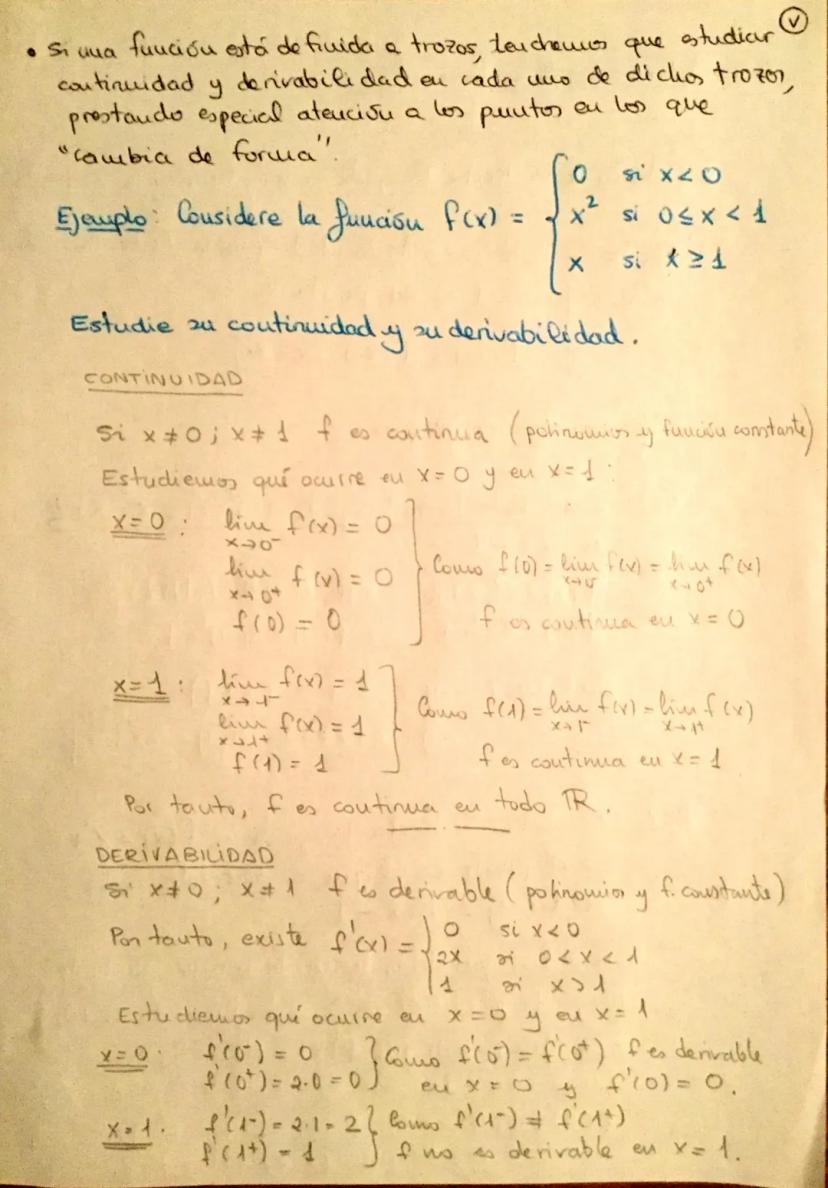 V
• Si una función está definida a trozos, tendremos que estudiar
continuidad y derivabilidad en cada uno de dichos trozos,
prestando especial atención a los puntos en los que
"cambia de forma".
Ejemplo: Considere la función f(x) = { 0 si x < 0
x² si 0 ≤ x < 1
x si x ≥ 1
Estudie su continuidad y su derivabilidad.
CONTINUIDAD
Si x ≠ 0 ; x ≠ 1 f es continua (polinomios y función constante)
Estudiemos qué ocurre en x = 0 y en x = 1 :
x = 0 : lim x→0⁻ f(x) = 0
lim x→0⁺ f(x) = 0
f(0) = 0
} Como f(0) = lim x→0⁻ f(x) = lim x→0⁺ f(x)
f es continua en x = 0
x = 1 : lim x→1⁻ f(x) = 1
lim x→1⁺ f(x) = 1
f(1) = 1
} Como f(1) = lim x→1⁻ f(x) = lim x→1⁺ f(x)
f es continua en x = 1
Por tanto, f es continua en todo ℝ.
DERIVABILIDAD
Si x ≠ 0 ; x ≠ 1 f es derivable (polinomios y f. constante)
Por tanto, existe f'(x) = { 0 si x < 0
2x si 0 < x < 1
1 si x > 1
Estudiemos qué ocurre en x = 0 y en x = 1
x = 0 : f'(0⁻) = 0 } Como f'(0⁻) = f'(0⁺) f es derivable
f'(0⁺) = 2·0 = 0 en x = 0 y f'(0) = 0.
x = 1 . f'(1⁻) = 2·1 = 2 } Como f'(1⁻) ≠ f'(1⁺)
f'(1⁺) = 1 f no es derivable en x = 1.